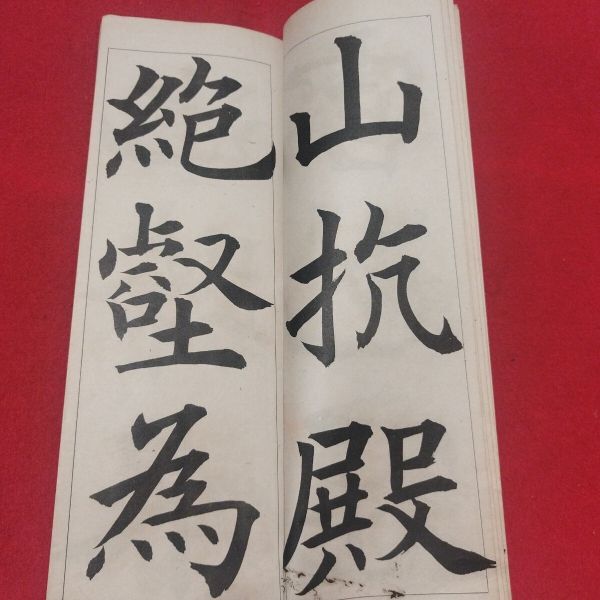 山抗殿
絶壑為